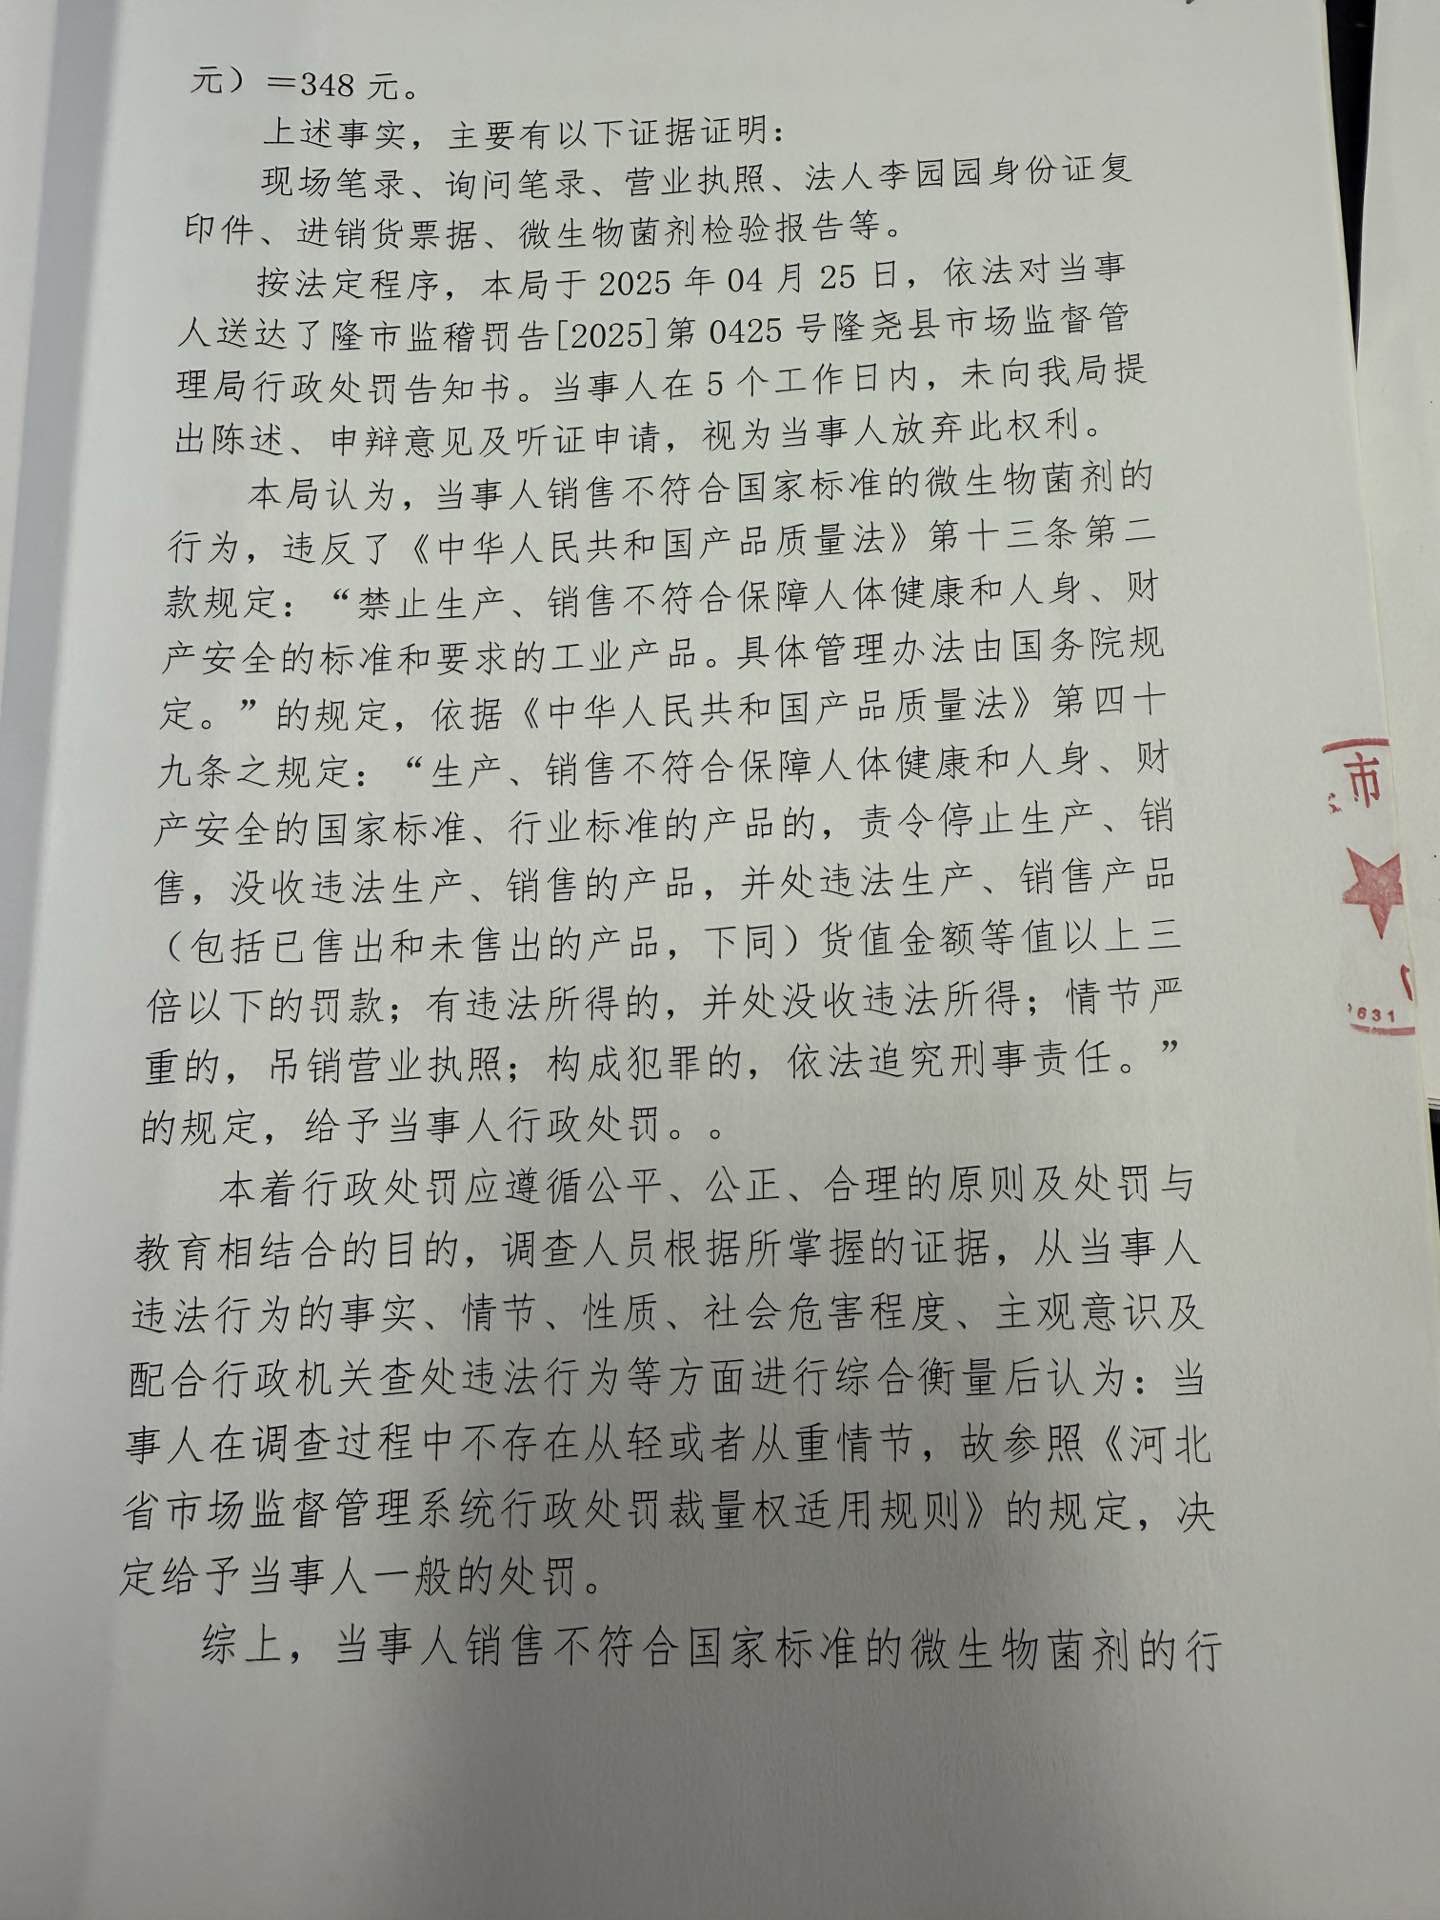 元）＝348 元。
上述事实，主要有以下证据证明：
现场笔录、询问笔录、营业执照、法人李园园身份证复
印件、进销货票据、微生物菌剂检验报告等。
按法定程序，本局于 2025 年 04 月 25 日，依法对当事
人送达了隆市监稽罚告[2025]第 0425 号隆尧县市场监督管
理局行政处罚告知书。当事人在 5 个工作日内，未向我局提
出陈述、申辩意见及听证申请，视为当事人放弃此权利。
本局认为，当事人销售不符合国家标准的微生物菌剂的
行为，违反了《中华人民共和国产品质量法》第十三条第二
款规定：“禁止生产、销售不符合保障人体健康和人身、财
产安全的标准和要求的工业产品。具体管理办法由国务院规
定。”的规定，依据《中华人民共和国产品质量法》第四十
九条之规定：“生产、销售不符合保障人体健康和人身、财
产安全的国家标准、行业标准的产品的，责令停止生产、销
售，没收违法生产、销售的产品，并处违法生产、销售产品
（包括已售出和未售出的产品，下同）货值金额等值以上三
倍以下的罚款；有违法所得的，并处没收违法所得；情节严
重的，吊销营业执照；构成犯罪的，依法追究刑事责任。”
的规定，给予当事人行政处罚。。
本着行政处罚应遵循公平、公正、合理的原则及处罚与
教育相结合的目的，调查人员根据所掌握的证据，从当事人
违法行为的事实、情节、性质、社会危害程度、主观意识及
配合行政机关查处违法行为等方面进行综合衡量后认为：当
事人在调查过程中不存在从轻或者从重情节，故参照《河北
省市场监督管理系统行政处罚裁量权适用规则》的规定，决
定给予当事人一般的处罚。
综上，当事人销售不符合国家标准的微生物菌剂的行
市
631